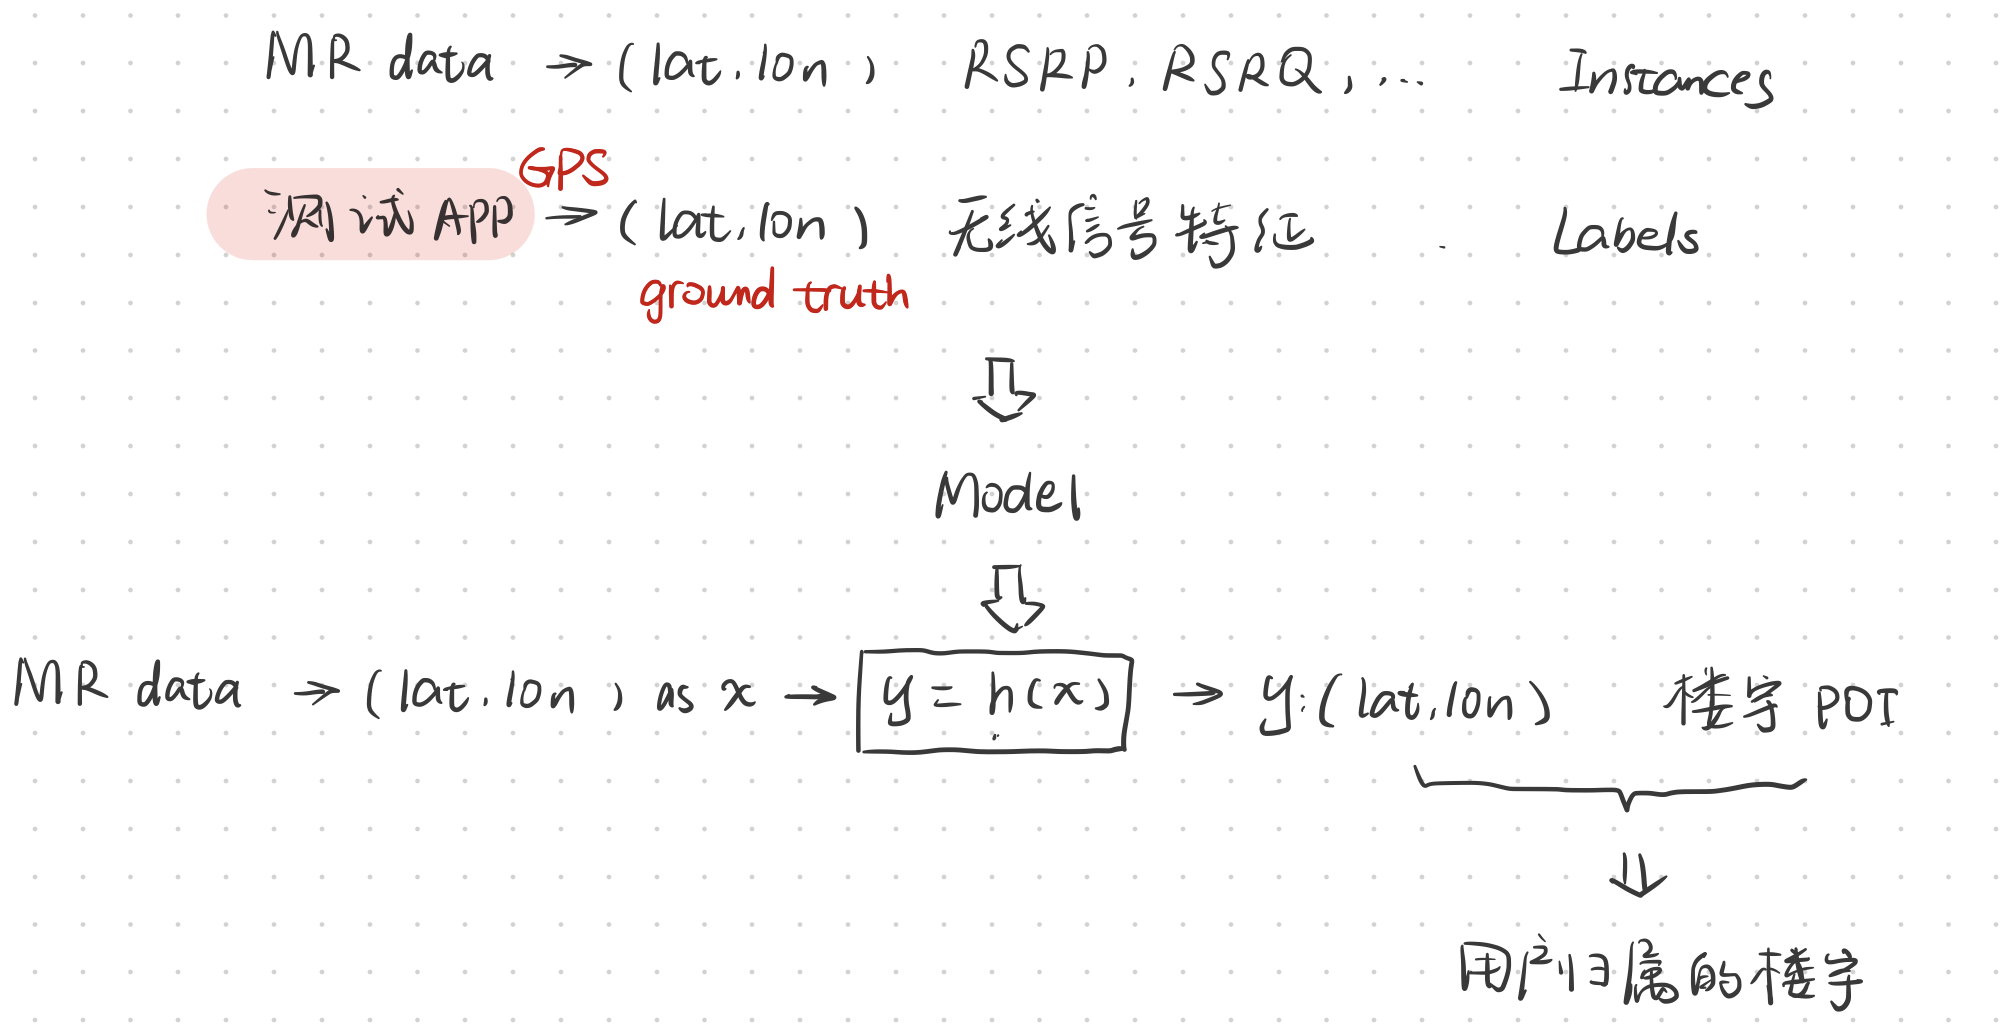 MR data → (lat, lon) RSRP, RSRQ, ... Instances
GPS
测试APP → (lat, lon) 无线信号特征 Labels
ground truth
Model
MR data → (lat, lon) as x → y = h(x) → y: (lat, lon) 楼宇 POI
用户归属的楼宇